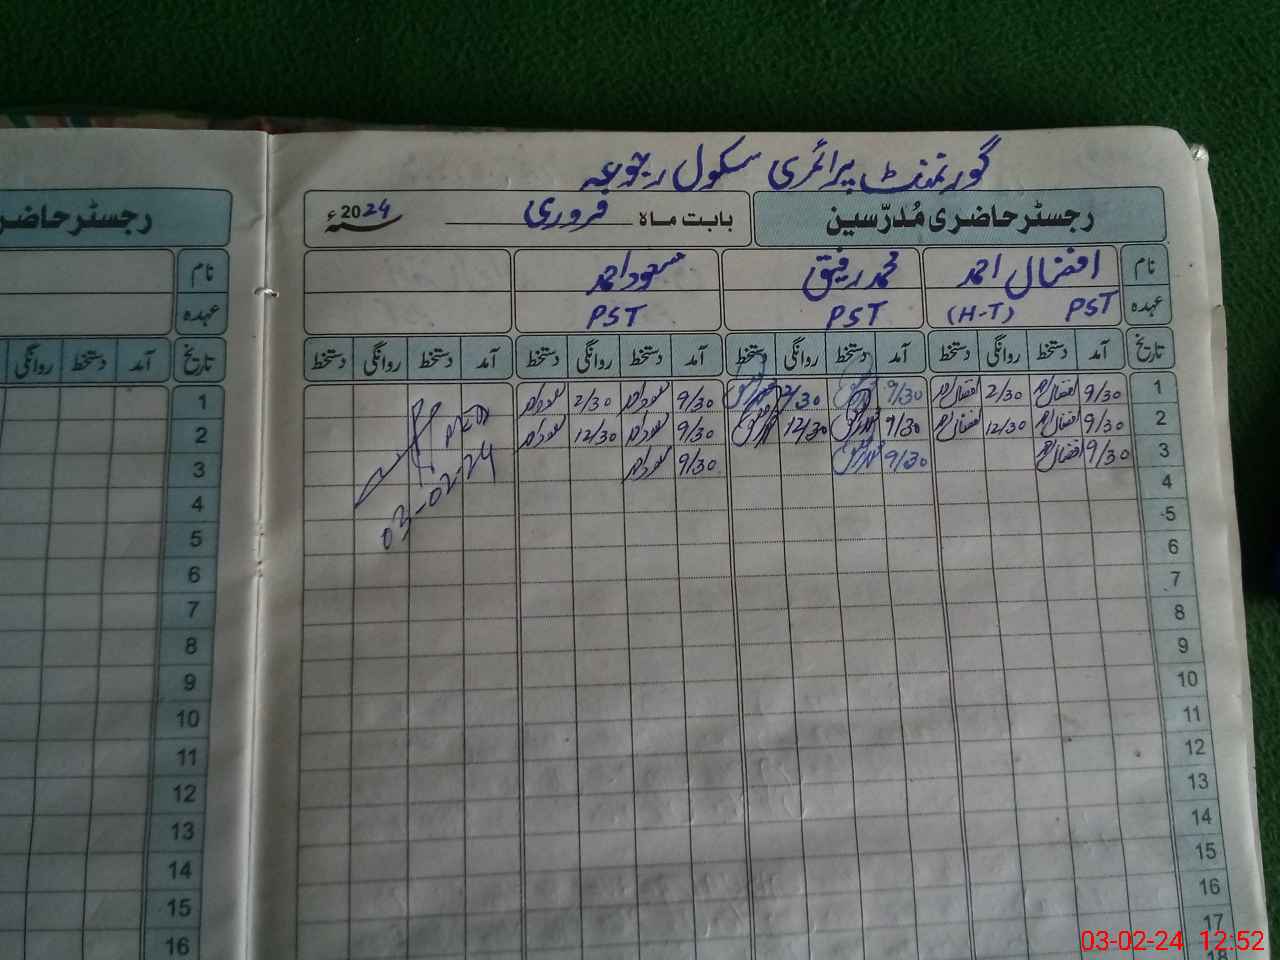 گورنمنٹ پرائمری سکول رجوعہ
رجسٹر حاضری مُدرّسین
بابت ماہ فروری 2024ء
نام افضال احمد محمد رفیق مسعود احمد
عہدہ PST (H-T) PST PST
تاریخ آمد دستخط روانگی دستخط آمد دستخط روانگی دستخط آمد دستخط روانگی دستخط آمد دستخط روانگی دستخط
1 9/30 2/30 9/30 2/30 9/30 2/30
2 9/30 12/30 9/30 12/30 9/30 12/30
3 9/30 9/30 9/30
03-02-24
4
5
6
7
8
9
10
11
12
13
14
15
16
17
18
رجسٹر حاضر
نام
عہدہ
تاریخ آمد دستخط روانگی
1
2
3
4
5
6
7
8
9
10
11
12
13
14
15
16
03-02-24 12:52